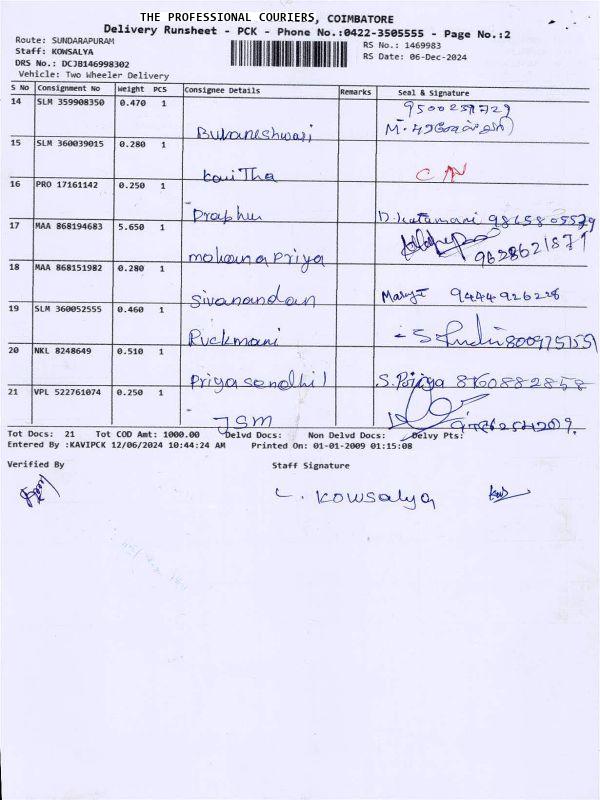 THE PROFESSIONAL COURIERS, COIMBATORE
Delivery Runsheet - PCK - Phone No.:0422-3505555 - Page No.:2
Route: SUNDARAPURAM
RS No.: 1469983
Staff: KOWSALYA
RS Date: 06-Dec-2024
DRS No.: DCJB146998302
Vehicle: Two Wheeler Delivery
S No Consignment No Weight PCS Consignee Details Remarks Seal & Signature
14 SLM 359908350 0.470 1
Bubaneshwari
15 SLM 360039015 0.280 1
kaviTha
16 PRO 17161142 0.250 1
Prabhu 9865805579
17 MAA 868194683 5.650 1
mohana priya 9628621871
18 MAA 868151982 0.280 1
Sivanandan 9444926228
19 SLM 360052555 0.460 1
Ruckmani
20 NKL 8248649 0.510 1
Priya sendhil S. Priya 8760882858
21 VPL 522761074 0.250 1
JSM
Tot Docs: 21 Tot COD Amt: 1000.00 Delvd Docs: Non Delvd Docs: Delvy Pts:
Entered By :KAVIPCK 12/06/2024 10:44:24 AM Printed On: 01-01-2009 01:15:08
Verified By Staff Signature
L. Kowsalya